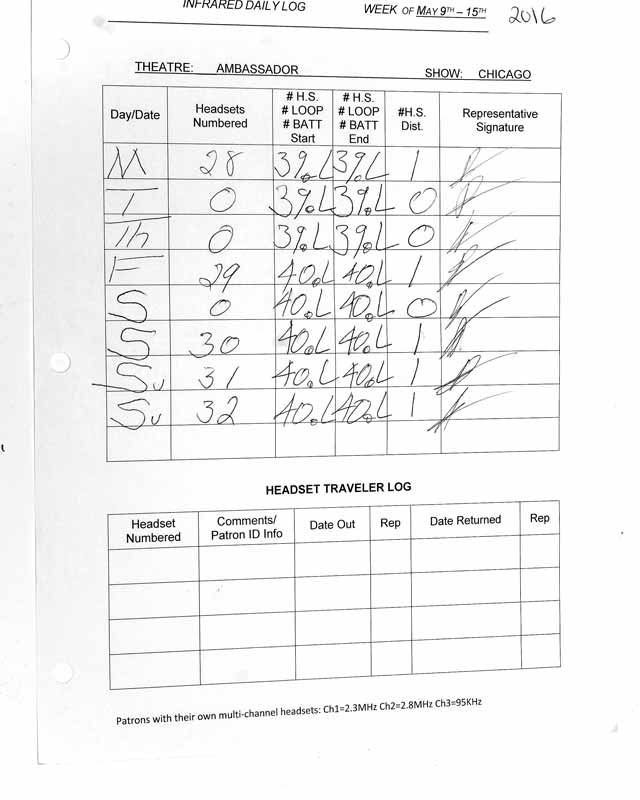 INFRARED DAILY LOG WEEK OF MAY 9TH – 15TH 2016
THEATRE: AMBASSADOR SHOW: CHICAGO
Day/Date Headsets Numbered # H.S. # LOOP # BATT Start # H.S. # LOOP # BATT End #H.S. Dist. Representative Signature
M 28 39.L 39.L 1
T 0 39.L 39.L 0
Th 0 39.L 39.L 0
F 29 40.L 40.L 1
S 0 40.L 40.L 0
S 30 40.L 40.L 1
Su 31 40.L 40.L 1
Su 32 40.L 40.L 1
HEADSET TRAVELER LOG
Headset Numbered Comments/ Patron ID Info Date Out Rep Date Returned Rep
Patrons with their own multi-channel headsets: Ch1=2.3MHz Ch2=2.8MHz Ch3=95KHz